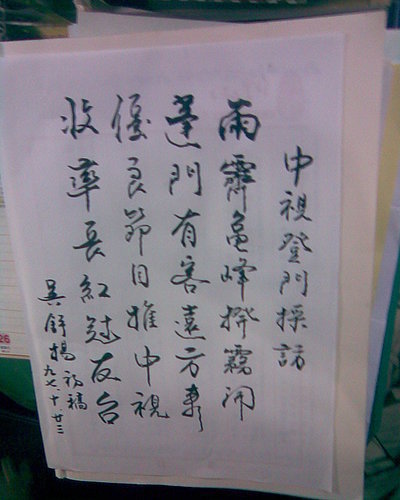 中視登門採訪
雨霽龜峰撥霧開
蓬門有客遠方來
優良節目推中視
收率長紅冠友台
吳舒揚初稿
九七.十.廿三
26